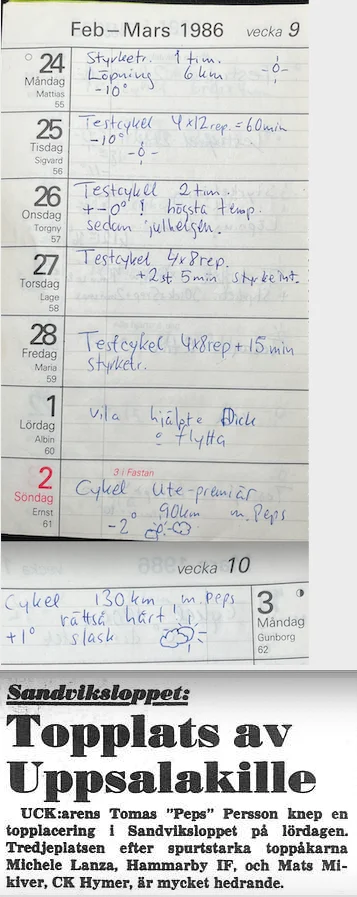 Feb–Mars 1986 vecka 9
24 Måndag Mattias 55
Styrketr. 1 tim.
Löpning 6 km
-10°
25 Tisdag Sigvard 56
Testcykel 4x12rep. = 60min
-10°
26 Onsdag Torgny 57
Testcykel 2 tim.
+-0° ! högsta temp.
sedan julhelgen.
27 Torsdag Lage 58
Testcykel 4x8rep.
+2st 5min styrkeint.
28 Fredag Maria 59
Testcykel 4x8rep + 15 min
styrketr.
1 Lördag Albin 60
vila hjälpte Dick
o flytta
3 i Fastan
2 Söndag Ernst 61
Cykel Ute-premiär
90km m. Peps
-2°
vecka 10
3 Måndag Gunborg 62
Cykel 130 km m. Peps
rättså hårt !
+1° slask
Sandviksloppet:
Topplats av
Uppsalakille
UCK:arens Tomas "Peps" Persson knep en
topplacering i Sandviksloppet på lördagen.
Tredjeplatsen efter spurtstarka toppåkarna
Michele Lanza, Hammarby IF, och Mats Mi-
kiver, CK Hymer, är mycket hedrande.